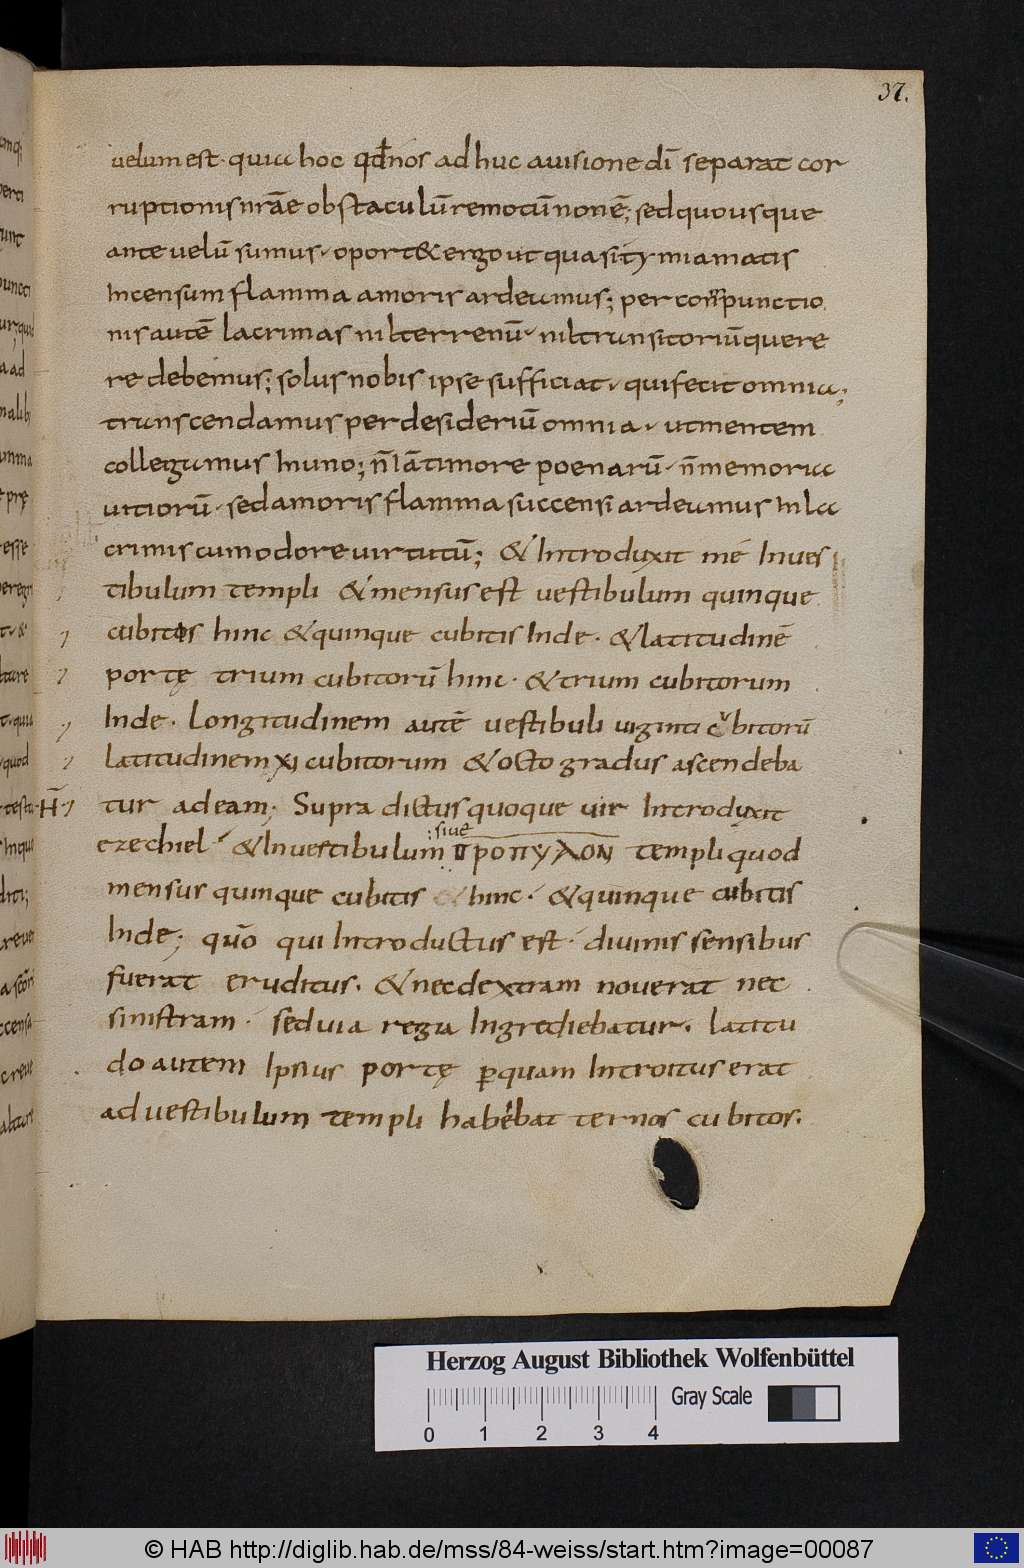 37.
uelum est · quia hoc qđ nos ad huc auisione dī separat cor
ruptionis nr̄ae obstaculū remotū non ē; sed quousque
ante velū sumus · oport& ergo ut quasi tymiamatis
Incensum flamma amoris ardeamus; per conpunctio
nis autē lacrimas nil terrenū · nil transitoriū quere
re debemus; solus nobis ipse sufficiat · qui fecit omnia;
transcendamus per desideriū omnia · ut mentem
collegamus In uno; n̄ Iā timore poenarū · n̄ memoria
uitiorū · sed amoris flamma succensi ardeamus In la
crimis cum odore uirtutū; & Introduxit me In ues
tibulum templi & mensus est vestibulum quinque
cubitos hinc & quinque cubitis Inde · & latitudinē
portę trium cubitorū hinc · & trium cubitorum
Inde · Longitudinem autē vestibuli uiginti cubitorū
Latitudinem xi cubitorum & octo gradus ascendeba
H̄ tur ad eam; Supra dictus quoque uir Introduxit
:siue
ezechiel & In uestibulum προπyλον templi quod
mensus quinque cubitis & hinc · & quinque cubitis
Inde; quō qui Introductus est · diuinis sensibus
fuerat eruditus · & nec dextram noverat nec
sinistram · sed uia regia Ingrediebatur · Latitu
do autem Ipsius portę ꝑquam Introitus erat
ad vestibulum templi habebat ternos cubitos.
Herzog August Bibliothek Wolfenbüttel
Gray Scale
0 1 2 3 4
© HAB http://diglib.hab.de/mss/84-weiss/start.htm?image=00087